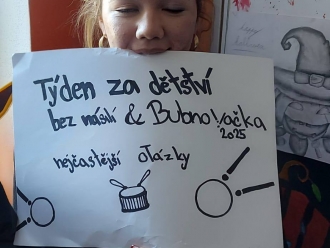 Týden za dětství
bez násilí & Bubnovačka
2025
nejčastější otázky